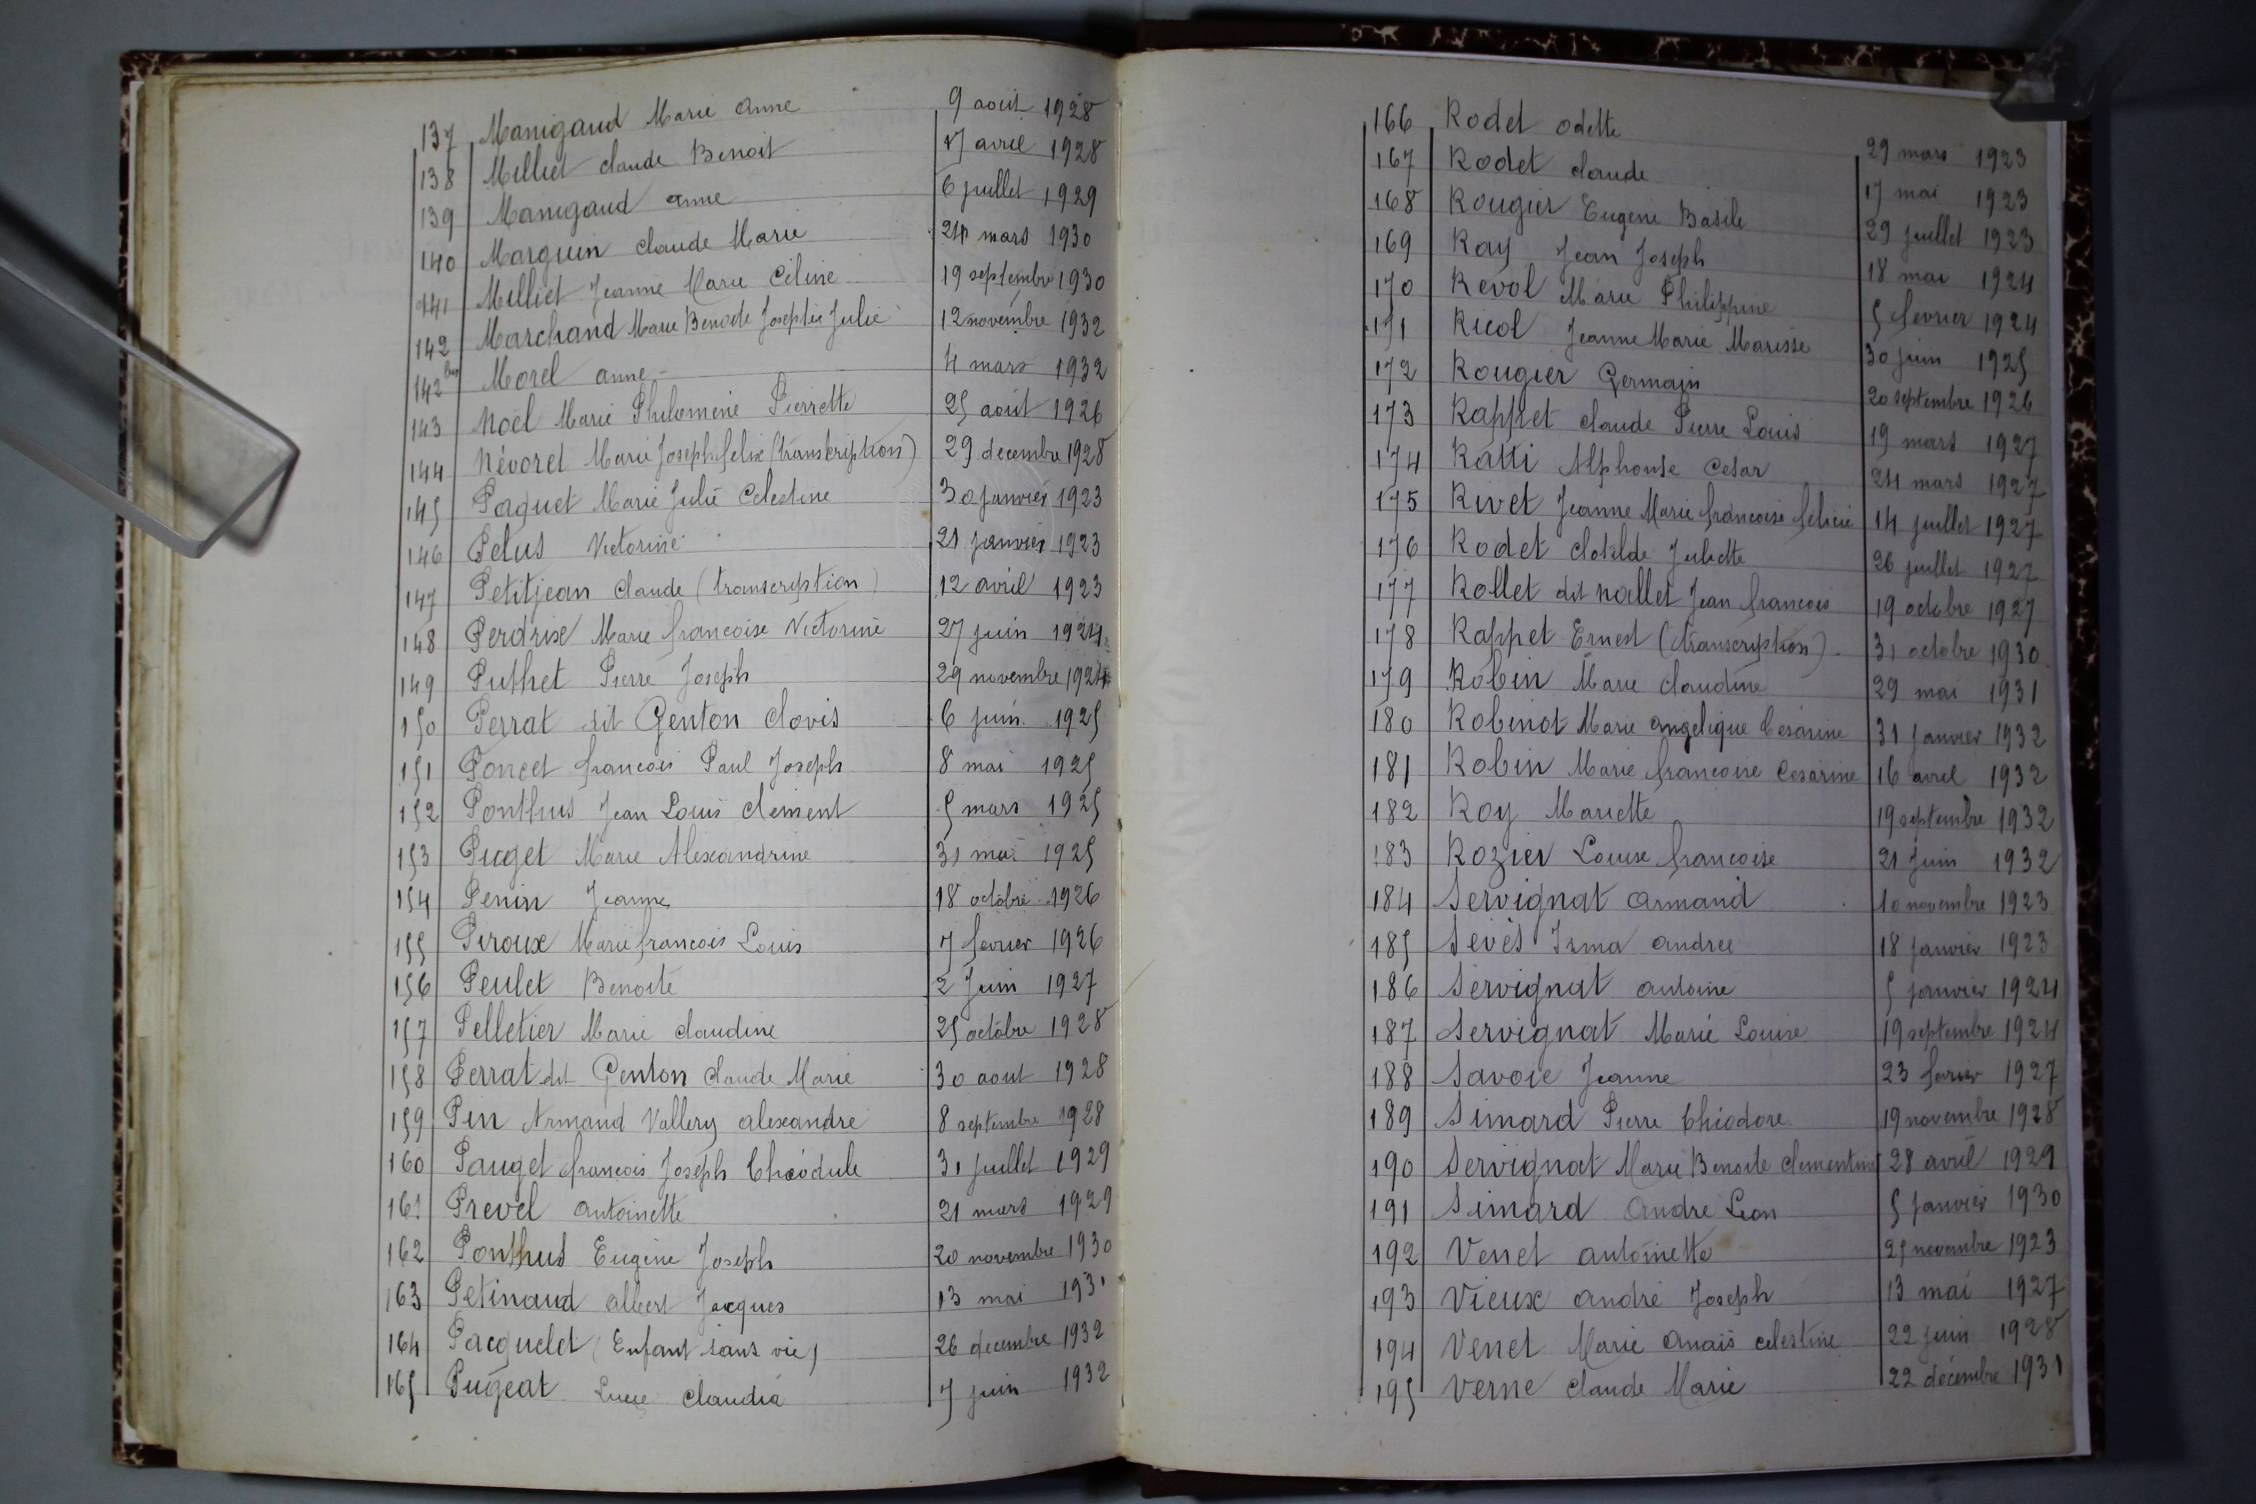 137 Manigaud Marie Anne 9 août 1928
138 Milliet Claude Benoit 17 avril 1928
139 Manigaud Anne 6 juillet 1929
140 Marguin Claude Marie 24 mars 1930
141 Milliet Jeanne Marie Céline 19 septembre 1930
142 Marchand Marie Benoite Josephte Julie 12 novembre 1932
142 bis Morel Anne 4 mars 1932
143 Noël Marie Philomène Pierrette 25 août 1926
144 Névoret Marie Joseph Felix (transkription) 29 decembre 1928
145 Paquet Marie Julie Celestine 30 janvier 1923
146 Pelus Victorine 21 janvier 1923
147 Petitjean Claude (transcription) 12 avril 1923
148 Perdrix Marie francoise Victorine 27 juin 1924
149 Puthet Pierre Joseph 29 novembre 1924
150 Perrat dit Genton Clovis 6 juin 1925
151 Poncet francois Paul Joseph 8 mai 1925
152 Ponthus Jean Louis Clement 5 mars 1925
153 Puget Marie Alexandrine 31 mai 1925
154 Penin Jeanne 18 octobre 1926
155 Piroux Marie francois Louis 7 fevrier 1926
156 Peulet Benoite 2 Juin 1927
157 Pelletier Marie Claudine 25 octobre 1928
158 Perrat dit Genton Claude Marie 30 aout 1928
159 Pin Armand Vallery Alexandre 8 septembre 1928
160 Pauget francois Joseph Théodule 31 juillet 1929
161 Prevel Antoinette 21 mars 1929
162 Ponthus Eugène Joseph 20 novembre 1930
163 Petinaud Albert Jacques 13 mai 1931
164 Pacquelet (Enfant sans vie) 26 decembre 1932
165 Pugeat Luce Claudia 7 juin 1932
166 Rodet Odette 29 mars 1923
167 Rodet Claude 17 mai 1923
168 Rougier Eugene Basile 29 juillet 1923
169 Ray Jean Joseph 18 mai 1924
170 Revol Marie Philippine 5 fevrier 1924
171 Ricol Jeanne Marie Marisse 30 juin 1925
172 Rougier Germain 20 septembre 1926
173 Rappet Claude Pierre Louis 19 mars 1927
174 Ratti Alphonse Cesar 24 mars 1927
175 Rivet Jeanne Marie francoise felicie 14 juillet 1927
176 Rodet Clotilde Juliette 26 juillet 1927
177 Rollet dit nallet Jean francois 19 octobre 1927
178 Rappet Ernest (transcription) 31 octobre 1930
179 Robin Marie Claudine 29 mai 1931
180 Robinot Marie Angelique Césarine 31 Janvier 1932
181 Robin Marie francoise Cesarine 16 avril 1932
182 Roy Mariette 19 septembre 1932
183 Rozier Louise francoise 21 juin 1932
184 Servignat Armand 10 novembre 1923
185 Sevès Irma Andree 18 janvier 1923
186 Servignat Antoine 5 janvier 1924
187 Servignat Marie Louise 19 septembre 1924
188 Savoie Jeanne 23 fevrier 1927
189 Simard Pierre Théodore 19 novembre 1928
190 Servignat Marie Benoite Clementine 28 avril 1929
191 Simard André Leon 5 Janvier 1930
192 Venet Antoinette 25 novembre 1923
193 Vieux André Joseph 13 mai 1927
194 Venet Marie Anaïs Celestine 22 juin 1928
195 Verne Claude Marie 22 décembre 1931